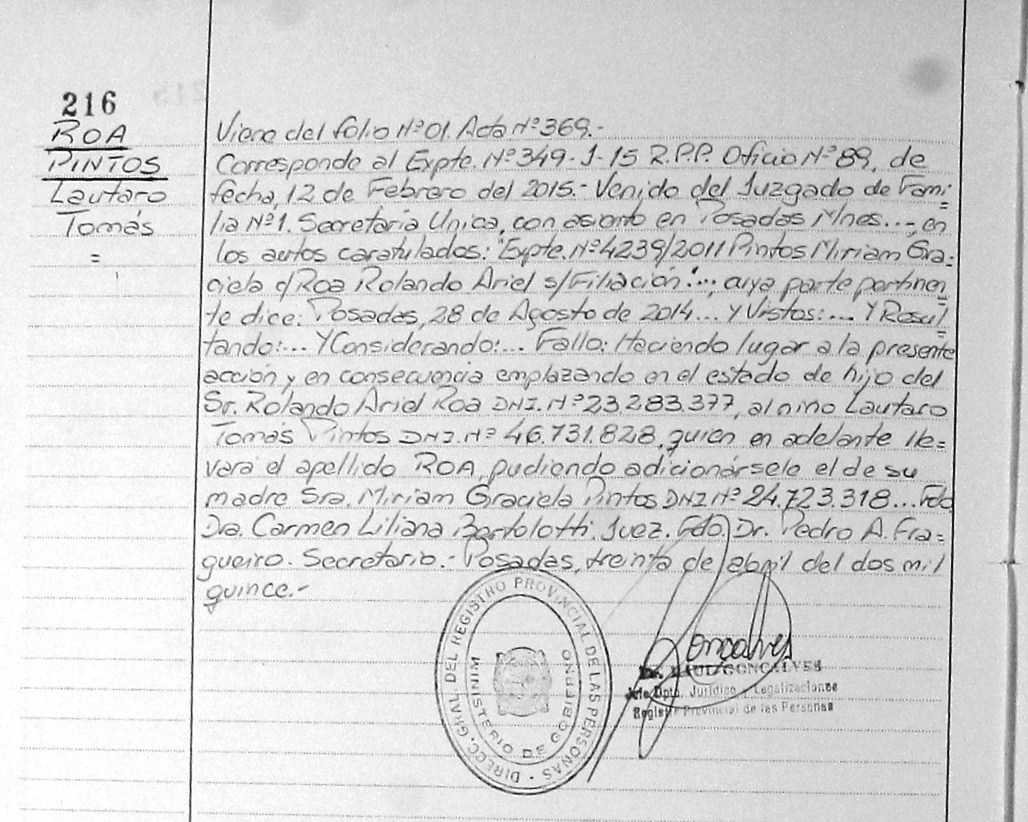 216
ROA
PINTOS
Lautaro
Tomás
=
Viene del folio Nº 01. Acta Nº 369.-
Corresponde al Expte. Nº 349-J-15 R.P.P. Oficio Nº 89, de
fecha, 12 de Febrero del 2015.- Venido del Juzgado de Fami=
lia Nº 1. Secretaria Unica, con asiento en Posadas Mnes..., en
los autos caratulados: "Expte. Nº 4239/2011 Pintos Miriam Gra=
ciela c/ Roa Rolando Ariel s/Filiación"..., cuya parte pertinen=
te dice: Posadas, 28 de Agosto de 2014... Y Vistos:... Y Resul=
tando:... Y Considerando:... Fallo: Haciendo lugar a la presente
acción y en consecuencia emplazando en el estado de hijo del
Sr. Rolando Ariel Roa DNI. Nº 23.283.377, al niño Lautaro
Tomás Pintos DNI. Nº 46.731.828, quien en adelante lle=
vara el apellido ROA, pudiendo adicionársele el de su
madre Sra. Miriam Graciela Pintos DNI Nº 24.723.318... Fdo
Dra. Carmen Liliana Bartolotti. Juez. Fdo. Dr. Pedro A. Fra=
gueiro. Secretario.- Posadas, treinta de abril del dos mil
quince.-
DIRECC. GRAL. DEL REGISTRO PROVINCIAL DE LAS PERSONAS
MINISTERIO DE GOBIERNO
Goncalves
Dr. RAUL GONCALVES
Jefe Dpto. Jurídico y Legalizaciones
Registro Provincial de las Personas